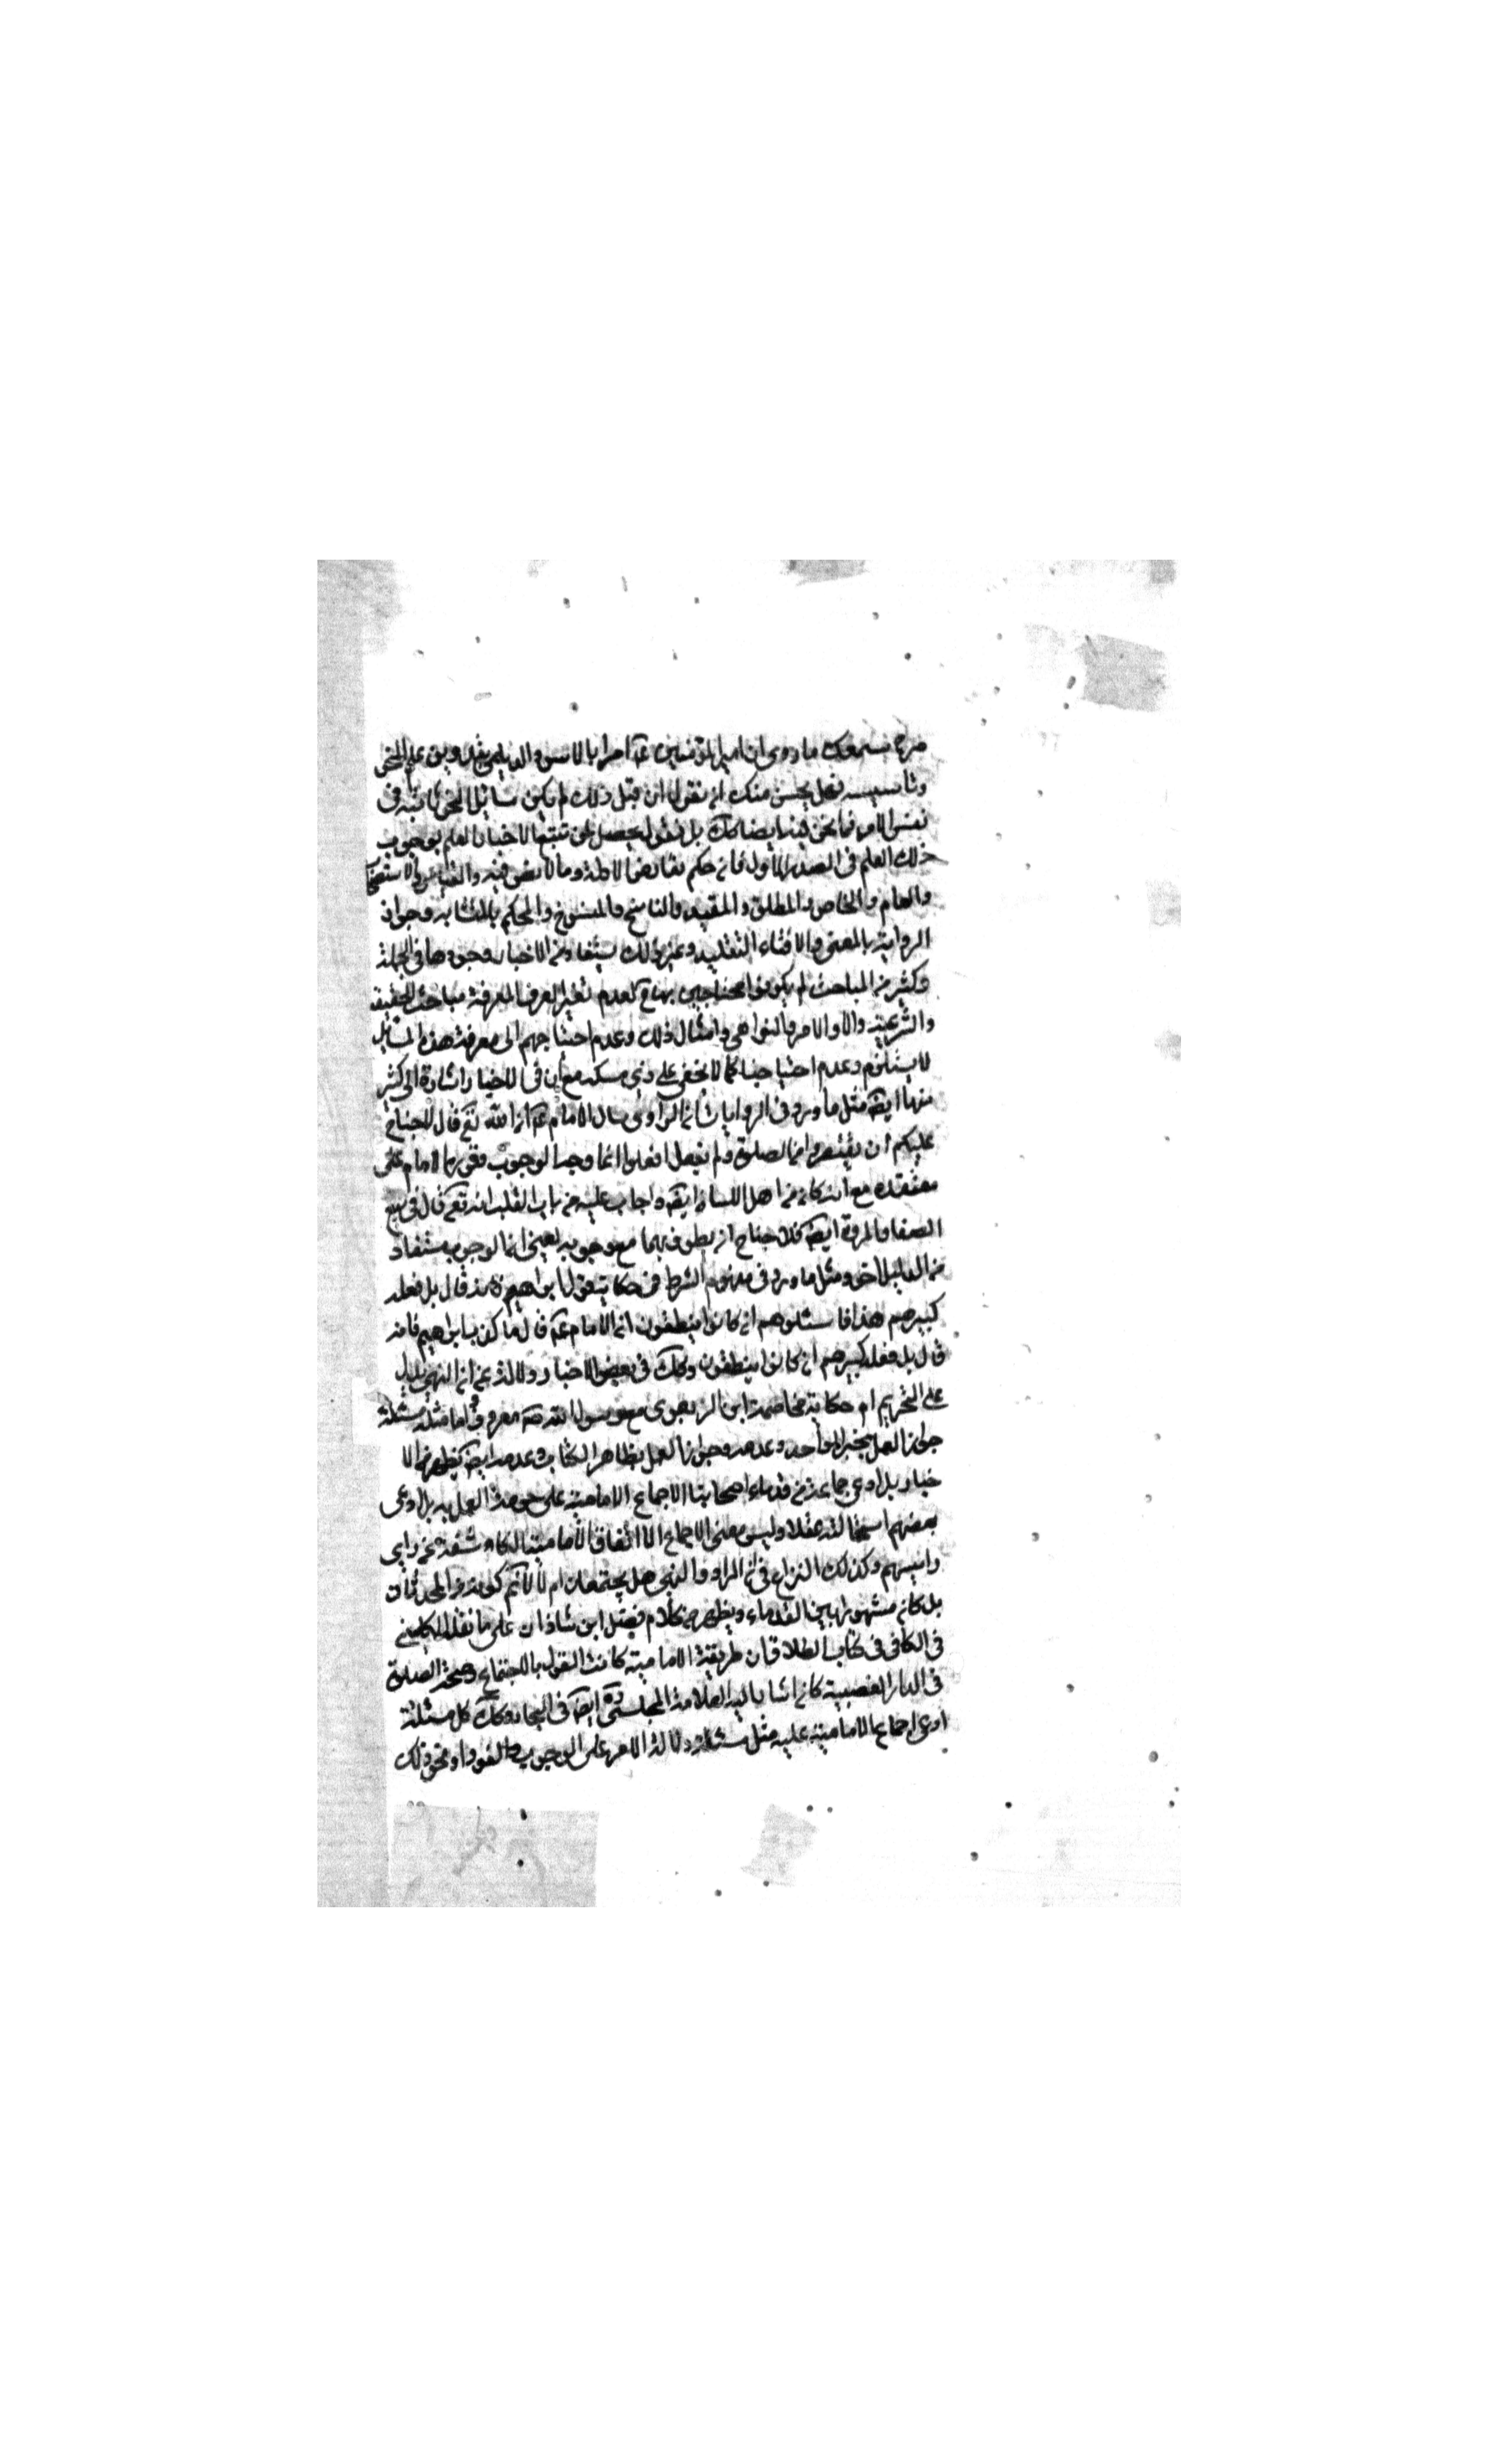 مرة بسمعك ما روى ان امير المؤمنين عم امر ابا الاسود الديلمي بتدوين علم النحو
وتأسيسه فهل يحسن منك ان تقول ان قبل ذلك لم يكن مسائل النحو ثابتة في
نفس الامر فما نحن فيه ايضا كك بل نقول يحصل من تتبع الاخبار العلم بوجوب
ذلك العلم في الصدر الاول فان حكم تعارض الادلة وما لا نص فيه والقياس والاستصحاب
والعام والخاص والمطلق والمقيد والناسخ والمنسوخ والمحكم بالمتشابه وجواز
الرواية بالمعنى والافتاء التقليد وغير ذلك يستفاد من الاخبار وجودها في الجملة
وكثير من المباحث لم يكونوا محتاجين بها كعدم تغير العرف لمعرفة مباحث الحقيقة
والشرعية والاوالامر والنواهي وامثال ذلك وعدم احتياجهم الى معرفة هذه المسائل
لا يستلزم وعدم احتياجنا كما لا يخفى على ذي مسكة مع ان في الاخبار اشارة الى كثير
منها ايضا مثل ما ورد في الروايات ان الراوي سال الامام عم ان الله تع قال لا جناح
عليكم ان تقصروا من الصلوة ولم يقل افعلوا انما وجه الوجوب فقرره الامام على
معتقده مع انه كان من اهل اللسان ايضا واجاب عليه من باب القلب انه تع قال في سعي
الصفا والمروة ايضا فلا جناح ان يطوف بهما مع وجوبه يعني انما الوجوب مستفاد
من الدليل اخر ومثل ما ورد في مفهوم الشرط في حكاية قول ابراهيم قال بل فعله
كبيرهم هذا فاسئلوهم ان كانوا ينطقون ان الامام عم قال ما كذب ابراهيم فانه
قال بل فعله كبيرهم ان كانوا ينطقون وكك في بعض الاخبار دلالة عن ان النهي يدل
على التحريم ام حكاية مخاصمة ابن الزبعرى مع رسول الله ص معروف واما مثل مسئلة
جواز العمل بخبر الواحد وعدمه وجواز العمل بظاهر الكتاب وعدمه ايضا يظهر من الا
خبار بل ادعى جماعة من قدماء اصحابنا الاجماع الامامية على حرمة العمل به بل ادعى
بعضهم استحالته عقلا وليس معنى الاجماع الا اتفاق الامامية الكاشفة عن راي
رئيسهم وكذلك النزاع في ان الامر والنهي هل يجتمعان ام لا لا نم كونه من المحدثات
بل كان مشهورا بين القدماء ويظهر من كلام فضل ابن شاذان على ما نقله الكليني
في الكافي في كتاب الطلاق ان طريقة الامامية كانت القول بالاجتماع وصحة الصلوة
في الدار الغصبية كان اشار اليه العلامة المجلسي ره ايضا في البحار وكك كل مسئلة
ادعى اجماع الامامية عليه مثل مسئلة دلالة الامر على الوجوب والفور او نحو ذلك